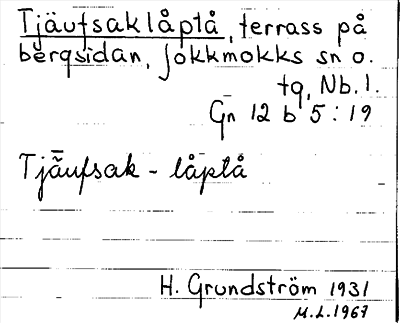 Tjäutsaklåptå, terrass på
bergsidan, Jokkmokks sn o.
tg, Nb. l.
Gn 12 b 5:19
Tjä̃̄ufsak - låptå
H. Grundström 1931
M.L. 1967